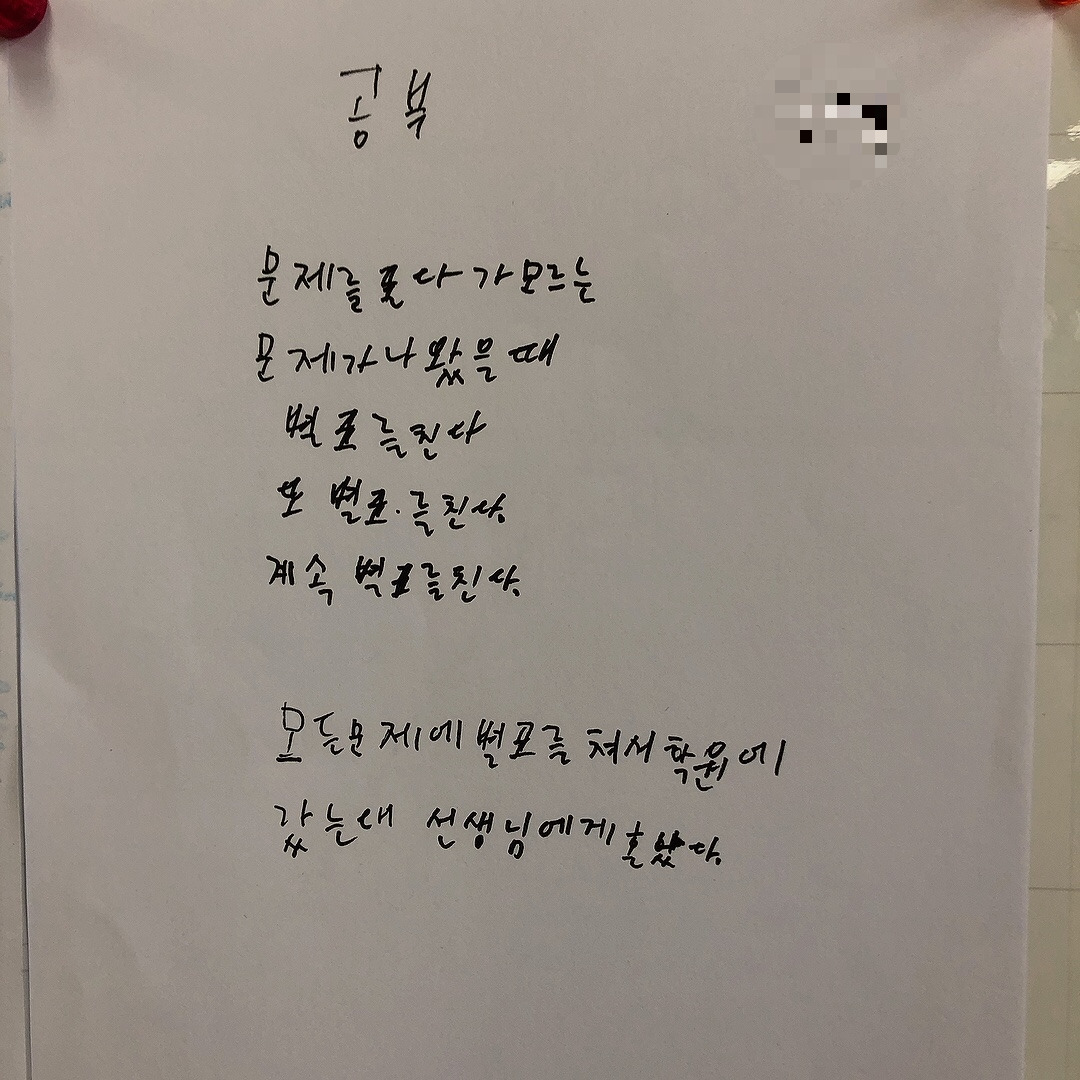 공부
문제를 포다가 모르는
문제가 나왔을 때
별표를 친다
또 별표.를 친다.
계속 별표를 친다.
모든 문제에 별표를 쳐서 학원에
갔는대 선생님에게 혼났다.